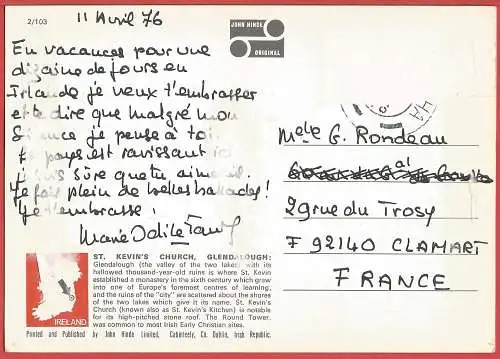 2/103
11 Avril 76
JOHN HINDE
ORIGINAL
En vacances pour une
dizaine de jours en
Irlande je veux t'embrasser
et te dire que malgré mon
Silence je pense à toi.
pays est ravissant
suis sûre que tu aimerais.
Je fais plein de belles ballades!
Je t'embrasse!
Marie Odile
Melle G. Rondeau
29 rue du Trosy
F 92140 CLAMART
FRANCE
ST. KEVIN'S CHURCH, GLENDALOUGH:
Glendalough (the valley of the two lakes) with its
hallowed thousand-year-old ruins is where St. Kevin
established a monastery in the sixth century which grew
into one of Europe's foremost centres of learning,
and the ruins of the "city" are scattered about the shores
of the two lakes which give it its name. St. Kevin's
Church (known also as St. Kevin's Kitchen) is notable
for its high-pitched stone roof. The Round Tower
was common to most Irish Early Christian sites.
IRELAND
Printed and Published by John Hinde Limited, Cabinteely, Co. Dublin, Irish Republic.